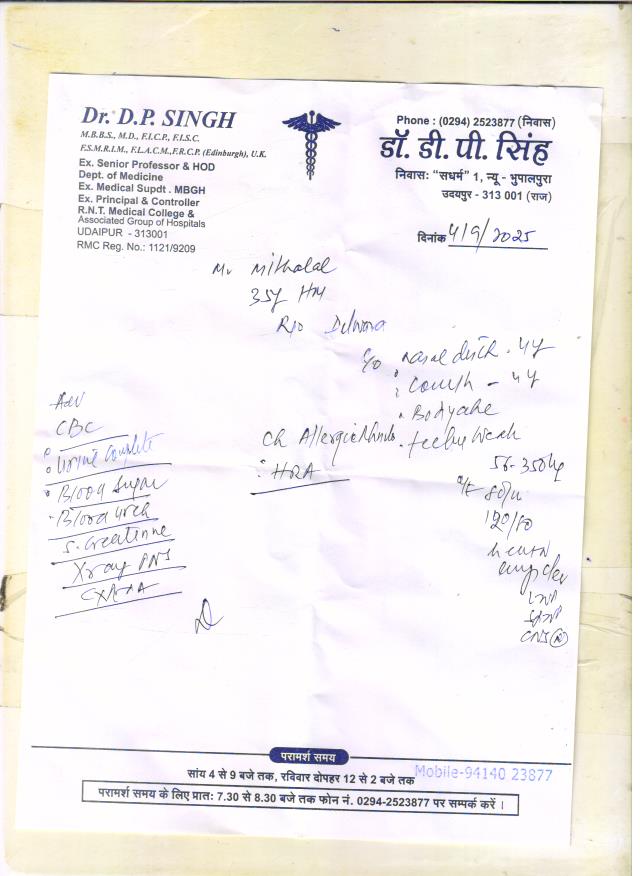 Dr. D.P. SINGH
M.B.B.S., M.D., F.I.C.P., F.I.S.C,
F.S.M.R.I.M., F.I.A.C.M.,F.R.C.P. (Edinburgh), U.K.
Ex. Senior Professor & HOD
Dept. of Medicine
Ex. Medical Supdt . MBGH
Ex. Principal & Controller
R.N.T. Medical College &
Associated Group of Hospitals
UDAIPUR - 313001
RMC Reg. No.: 1121/9209
Phone : (0294) 2523877 (निवास)
डॉ. डी. पी. सिंह
निवासः "सधर्म" 1, न्यू - भुपालपुरा
उदयपुर - 313 001 (राज)
दिनांक 4/9/2025
Mr Mithalal
35y HM
R/o Delwara
c/o nasal disch - 4y
Cough - 4y
Bodyache
feeling weak
Ch Allergic
HRA
56.350kg
80/m
120/80
CNS (N)
Adv
CBC
Urine Complete
Blood Sugar
Blood Urea
S. Creatinine
Xray PNS
CXR PA
परामर्श समय
सांय 4 से 9 बजे तक, रविवार दोपहर 12 से 2 बजे तक
Mobile-94140 23877
परामर्श समय के लिए प्रातः 7.30 से 8.30 बजे तक फोन नं. 0294-2523877 पर सम्पर्क करें ।